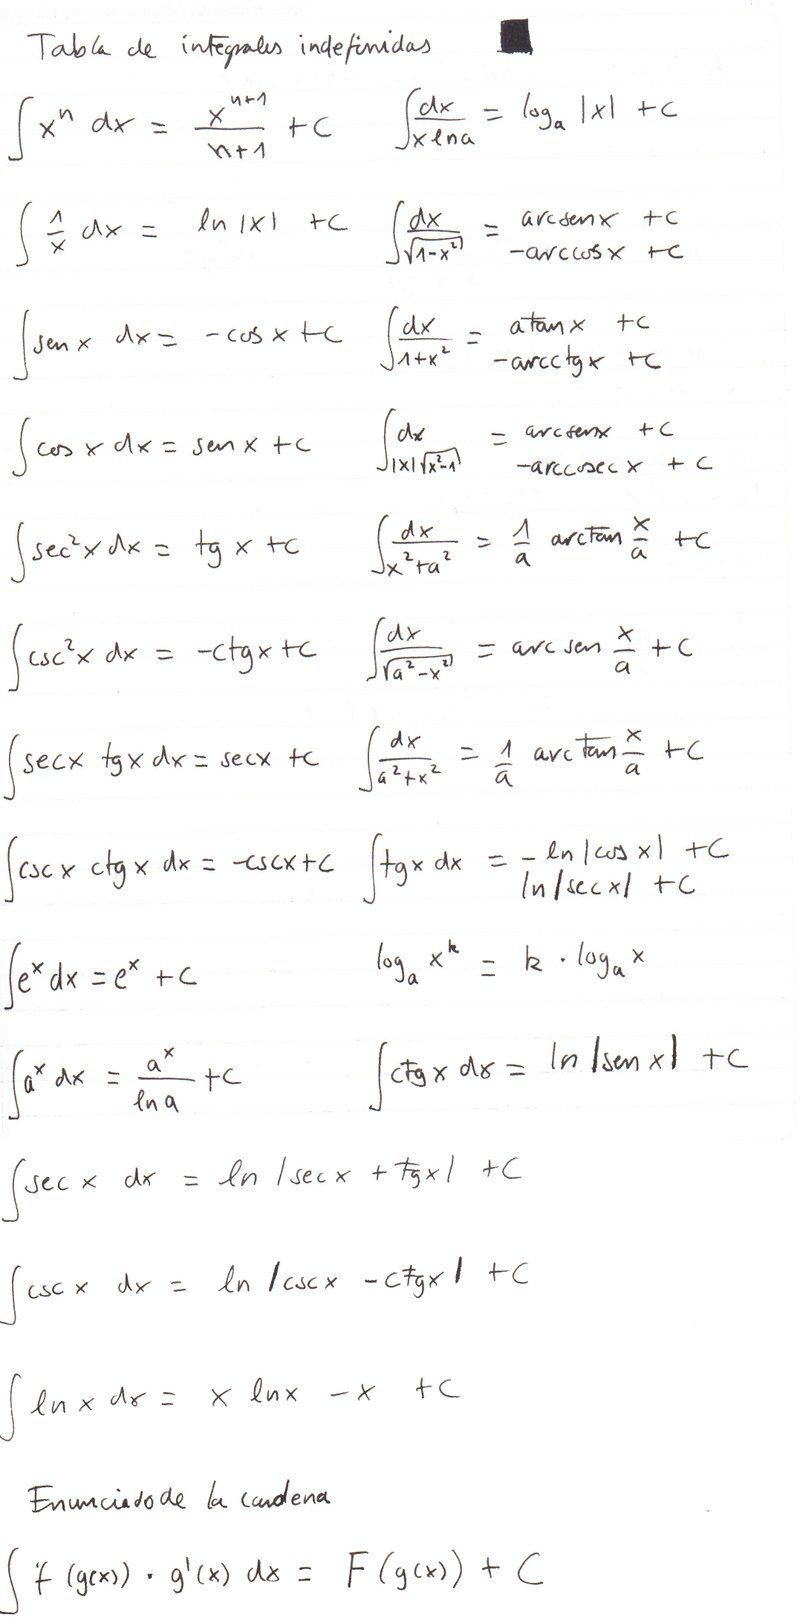 Tabla de integrales indefinidas
∫ xⁿ dx = xⁿ⁺¹/(n+1) + C
∫ dx/(x ln a) = logₐ |x| + C
∫ 1/x dx = ln |x| + C
∫ dx/√(1-x²) = arcsen x + C
-arccos x + C
∫ sen x dx = -cos x + C
∫ dx/(1+x²) = atan x + C
-arcctg x + C
∫ cos x dx = sen x + C
∫ dx/(|x|√(x²-1)) = arcsenx + C
-arccosec x + C
∫ sec²x dx = tg x + C
∫ dx/(x²+a²) = 1/a arctan x/a + C
∫ csc²x dx = -ctgx + C
∫ dx/√(a²-x²) = arc sen x/a + C
∫ secx tgx dx = secx + C
∫ dx/(a²+x²) = 1/a arctan x/a + C
∫ csc x ctg x dx = -cscx + C
∫ tgx dx = -ln |cos x| + C
ln |sec x| + C
∫ eˣ dx = eˣ + C
logₐ xᵏ = k · logₐ x
∫ aˣ dx = aˣ/ln a + C
∫ ctg x dx = ln |sen x| + C
∫ sec x dx = ln |sec x + tgx| + C
∫ csc x dx = ln |csc x - ctgx| + C
∫ ln x dx = x lnx - x + C
Enunciado de la candena
∫ f (g(x)) · g'(x) dx = F (g(x)) + C